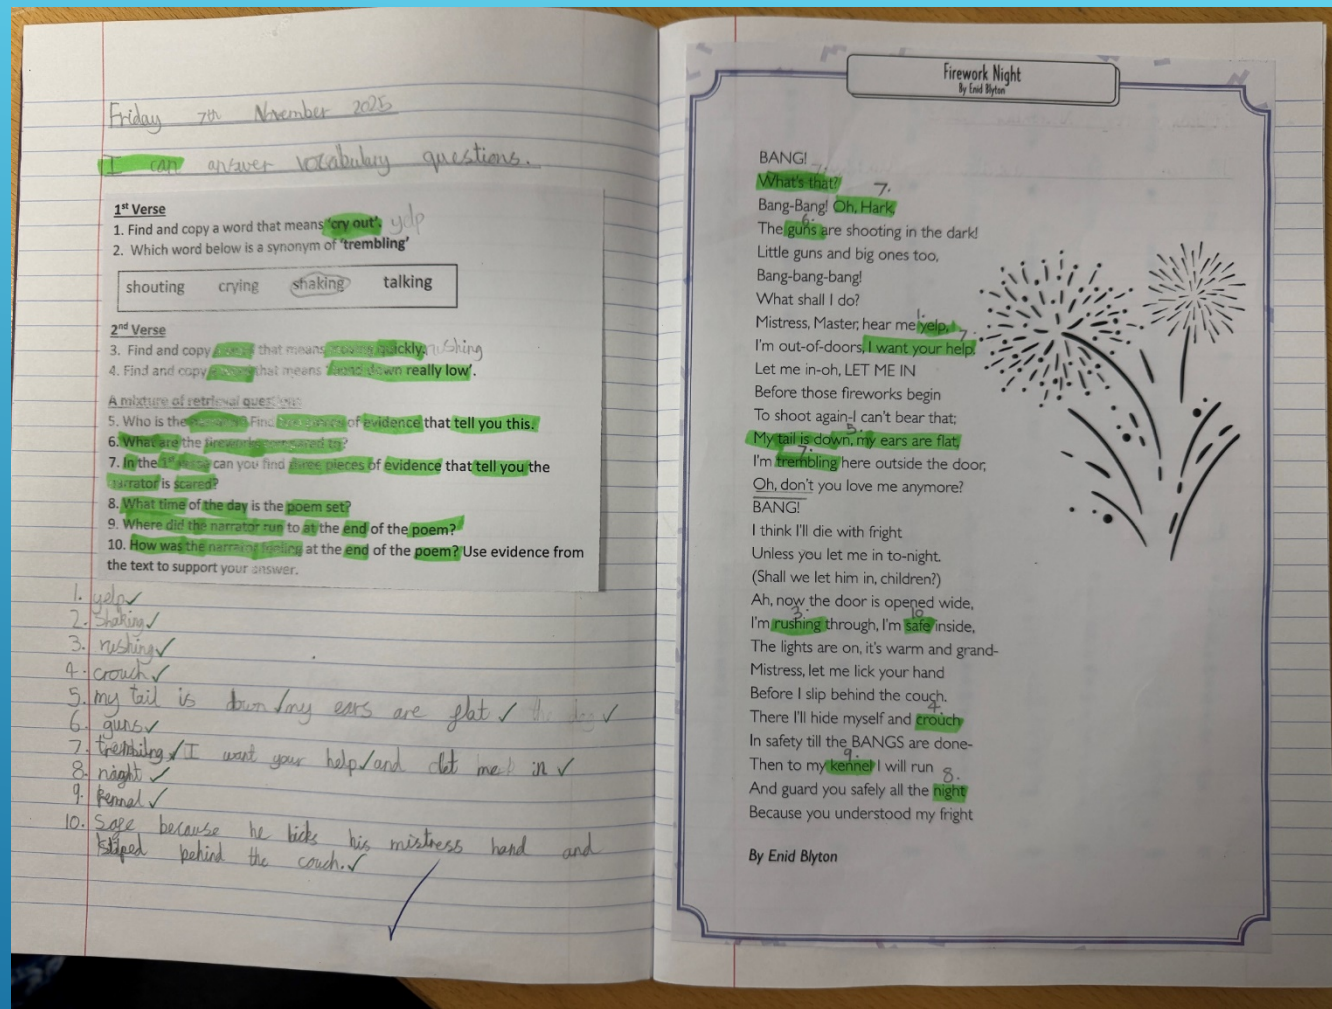 Friday 7th November 2025
I can answer vocabulary questions.
1st Verse
1. Find and copy a word that means 'cry out'. yelp
2. Which word below is a synonym of 'trembling'
shouting crying shaking talking
2nd Verse
3. Find and copy that means quickly. rushing
4. Find and copy that means down really low'.
A mixture of retrieval questions
5. Who is the Find of evidence that tell you this.
6. What are the fireworks compared to?
7. In the 1st verse can you find three pieces of evidence that tell you the
narrator is scared?
8. What time of the day is the poem set?
9. Where did the narrator run to at the end of the poem?
10. How was the narrator feeling at the end of the poem? Use evidence from
the text to support your answer.
1. yelp
2. Shaking
3. rushing
4. crouch
5. my tail is down/my ears are flat the dog
6. guns
7. trembling/I want your help/and let me in
8. night
9. kennel
10. Safe because he licks his mistress hand and
sliped behind the couch.
Firework Night
By Enid Blyton
BANG!
What's that? 7.
Bang-Bang! Oh, Hark,
6.
The guns are shooting in the dark!
Little guns and big ones too,
Bang-bang-bang!
What shall I do?
1.
Mistress, Master, hear me yelp,
7.
I'm out-of-doors, I want your help.
Let me in-oh, LET ME IN
Before those fireworks begin
To shoot again-I can't bear that;
5.
My tail is down, my ears are flat,
7.
I'm trembling here outside the door,
Oh, don't you love me anymore?
BANG!
I think I'll die with fright
Unless you let me in to-night.
(Shall we let him in, children?)
Ah, now the door is opened wide,
3. 10
I'm rushing through, I'm safe inside,
The lights are on, it's warm and grand-
Mistress, let me lick your hand
Before I slip behind the couch.
4.
There I'll hide myself and crouch
In safety till the BANGS are done-
9.
Then to my kennel I will run
8.
And guard you safely all the night
Because you understood my fright
By Enid Blyton